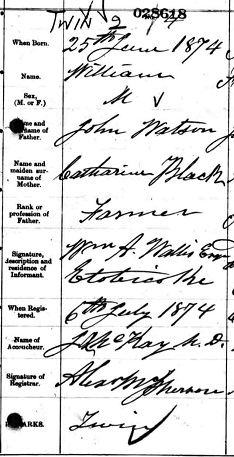 TWIN 2 1/4
028618
When Born.
25th June 1874
Name.
William
Sex,
(M. or F.)
M ✓
Name and
surname of
Father.
John Watson
Name and
maiden sur-
name of
Mother.
Catharine Black
Rank or
profession of
Father.
Farmer
Signature,
description and
residence of
Informant.
Wm A. Wallis Esq
Etobicoke
When Regis-
tered.
6th July 1874
Name of
Accoucheur.
McKay M.D.
Signature of
Registrar.
Alex McPherson
REMARKS.
Twin